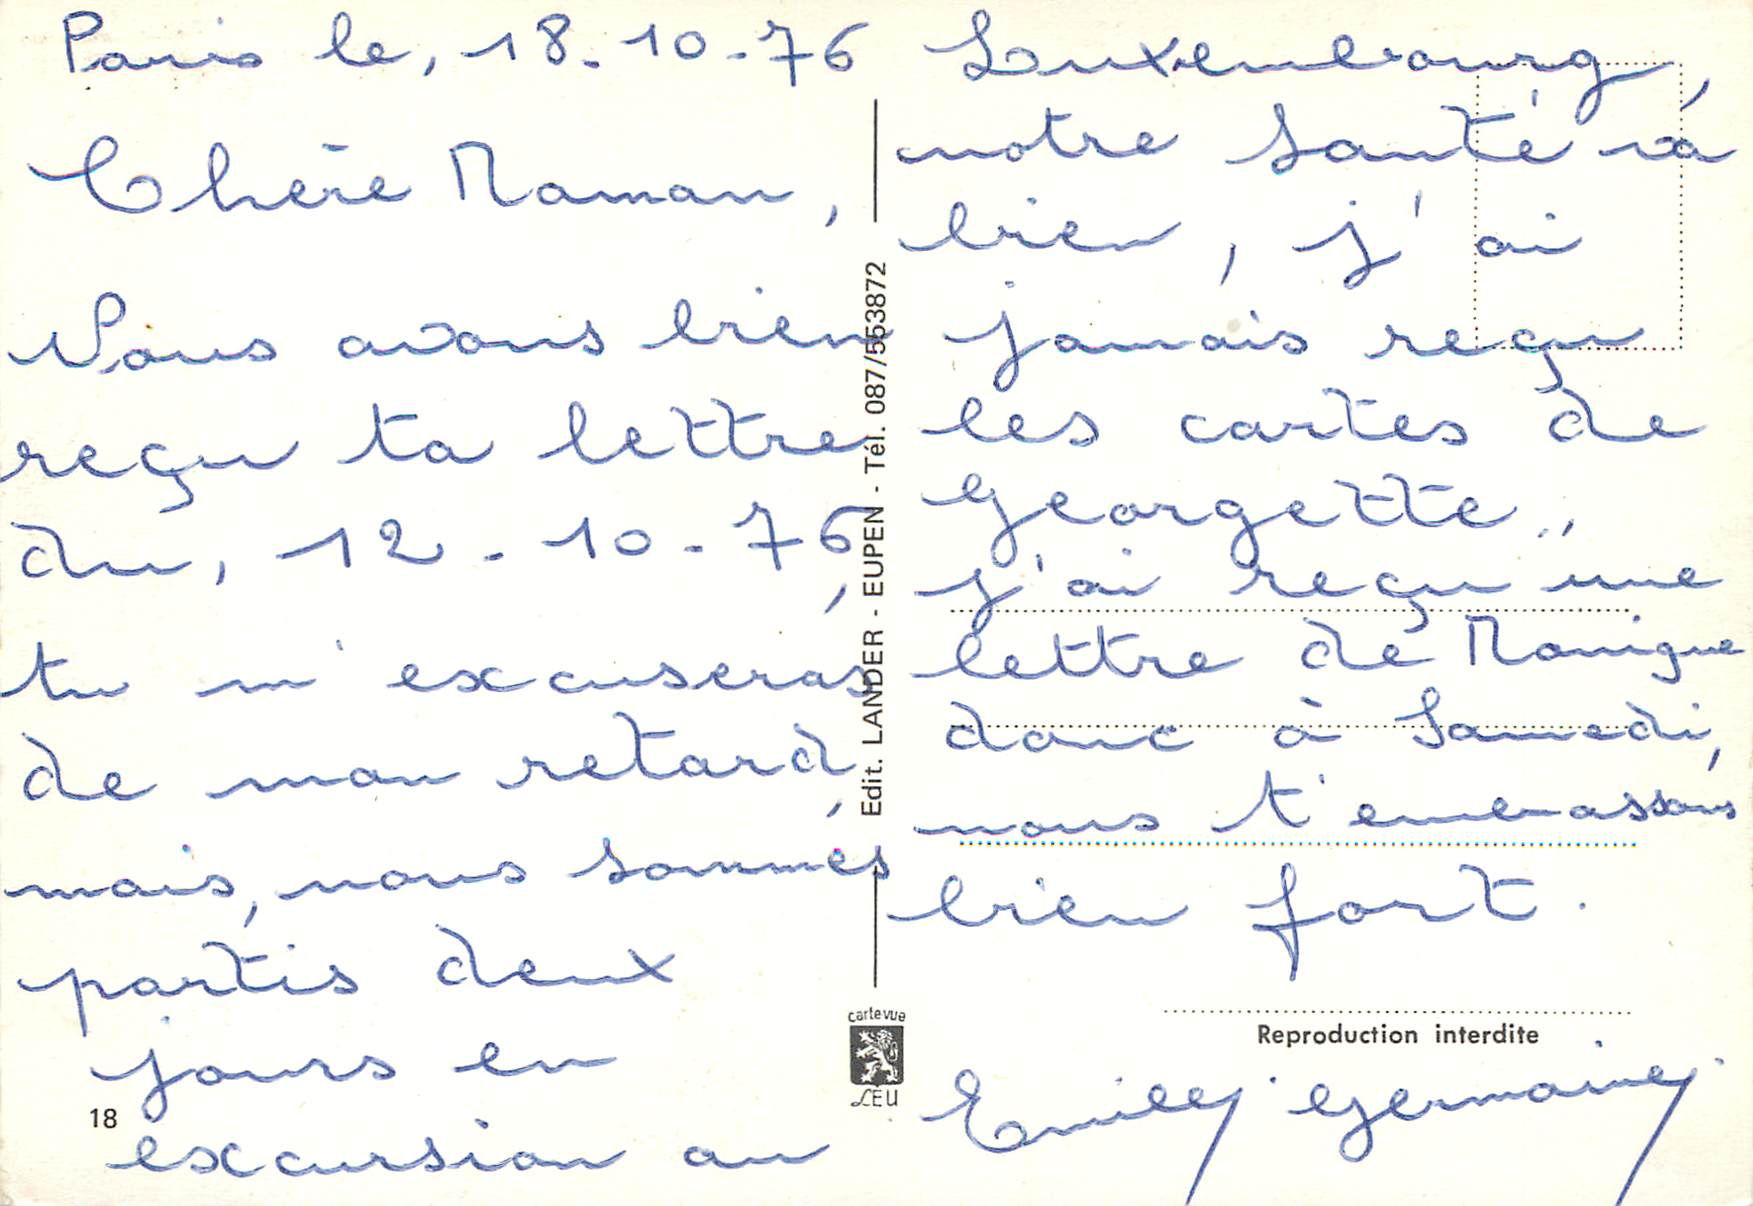 Paris le, 18-10-76
Chère Maman,
Nous avons bien
reçu ta lettre
du, 12-10-76,
tu m'excuseras
de mon retard,
mais, nous sommes
partis deux
jours en
excursion au
18
Edit. LANDER - EUPEN - Tél. 087/553872
cartevue
LEU
Luxembourg,
notre santé va
bien, j'ai
jamais reçu
les cartes de
Georgette,,
j'ai reçu une
lettre de Monique
donc à Samedi,
nous t'embrassons
bien fort.
Reproduction interdite
Germaine